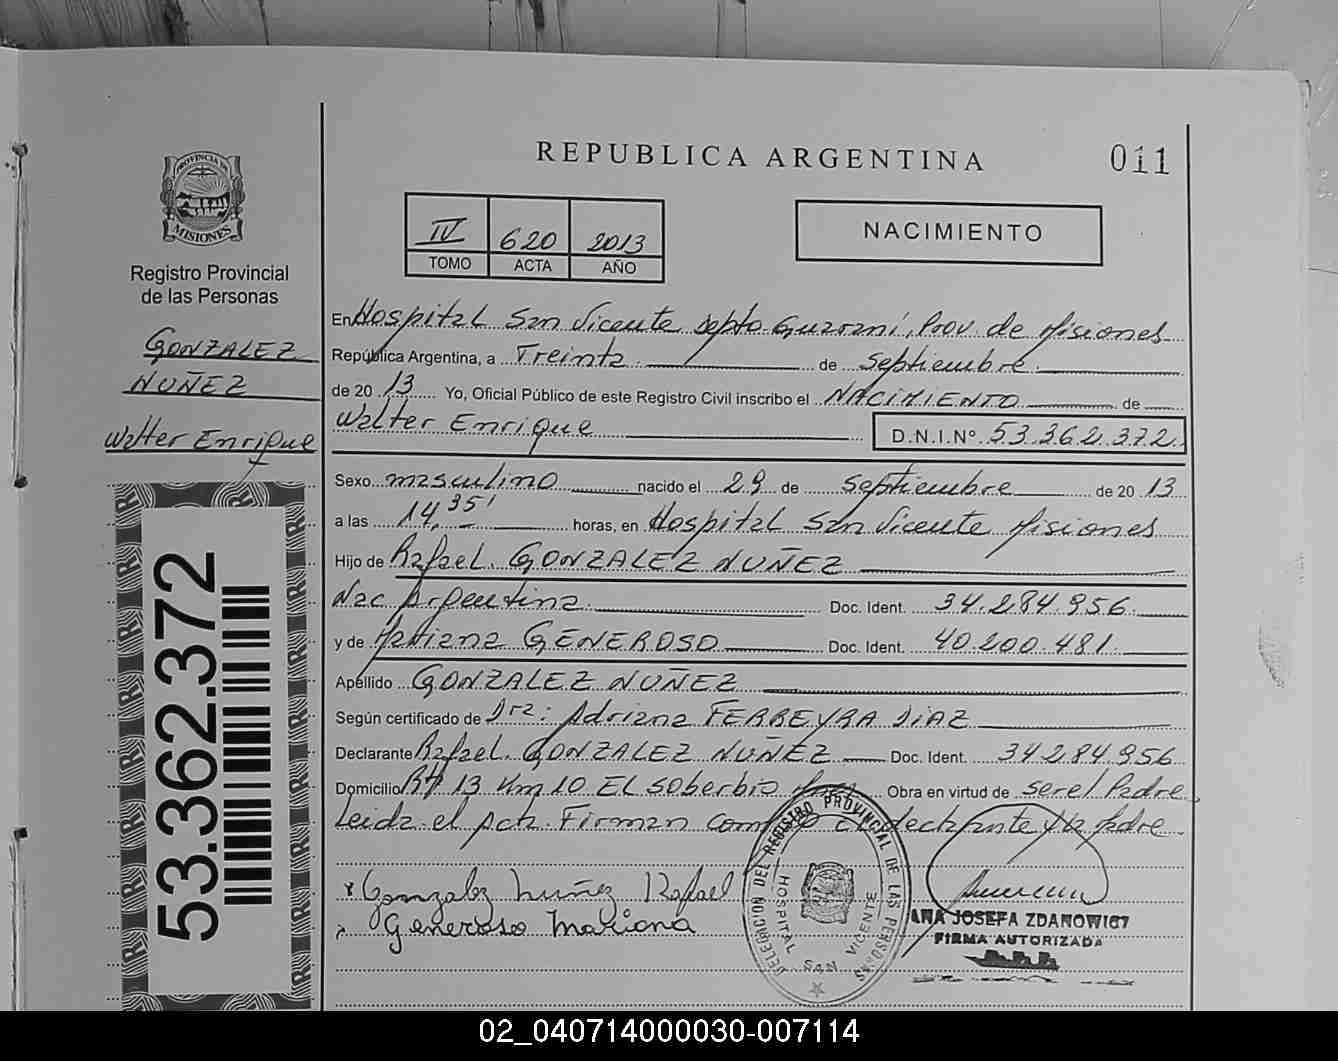 REPUBLICA ARGENTINA
011
PROVINCIA DE
MISIONES
Registro Provincial
de las Personas
IV 620 2013
TOMO ACTA AÑO
NACIMIENTO
GONZALEZ
NUÑEZ
Walter Enrique
53.362.372
En Hospital San Vicente Depto Guaraní, Prov. de Misiones
República Argentina, a Treinta de Septiembre
de 20 13 Yo, Oficial Público de este Registro Civil inscribo el NACIMIENTO de
Walter Enrique D.N.I.Nº 53.362.372
Sexo masculino nacido el 29 de Septiembre de 20 13
a las 14,35' horas, en Hospital San Vicente Misiones
Hijo de Rafael GONZALEZ NUÑEZ
Nac Argentina Doc. Ident. 34.284.956
y de Mariana GENEROSO Doc. Ident. 40.200.481
Apellido GONZALEZ NUÑEZ
Según certificado de Dra: Adriana FERREYRA DIAZ
Declarante Rafael GONZALEZ NUÑEZ Doc. Ident. 34.284.956
Domicilio 13 Km 10 El Soberbio Obra en virtud de ser el Padre
Leida el Acta Firman como declarante y la Madre
Gonzalez Nuñez Rafael
Generoso Mariana
DELEGACION DEL REGISTRO PROVINCIAL DE LAS PERSONAS
HOSPITAL SAN VICENTE
ANA JOSEFA ZDANOWICZ
FIRMA AUTORIZADA
02_040714000030-007114